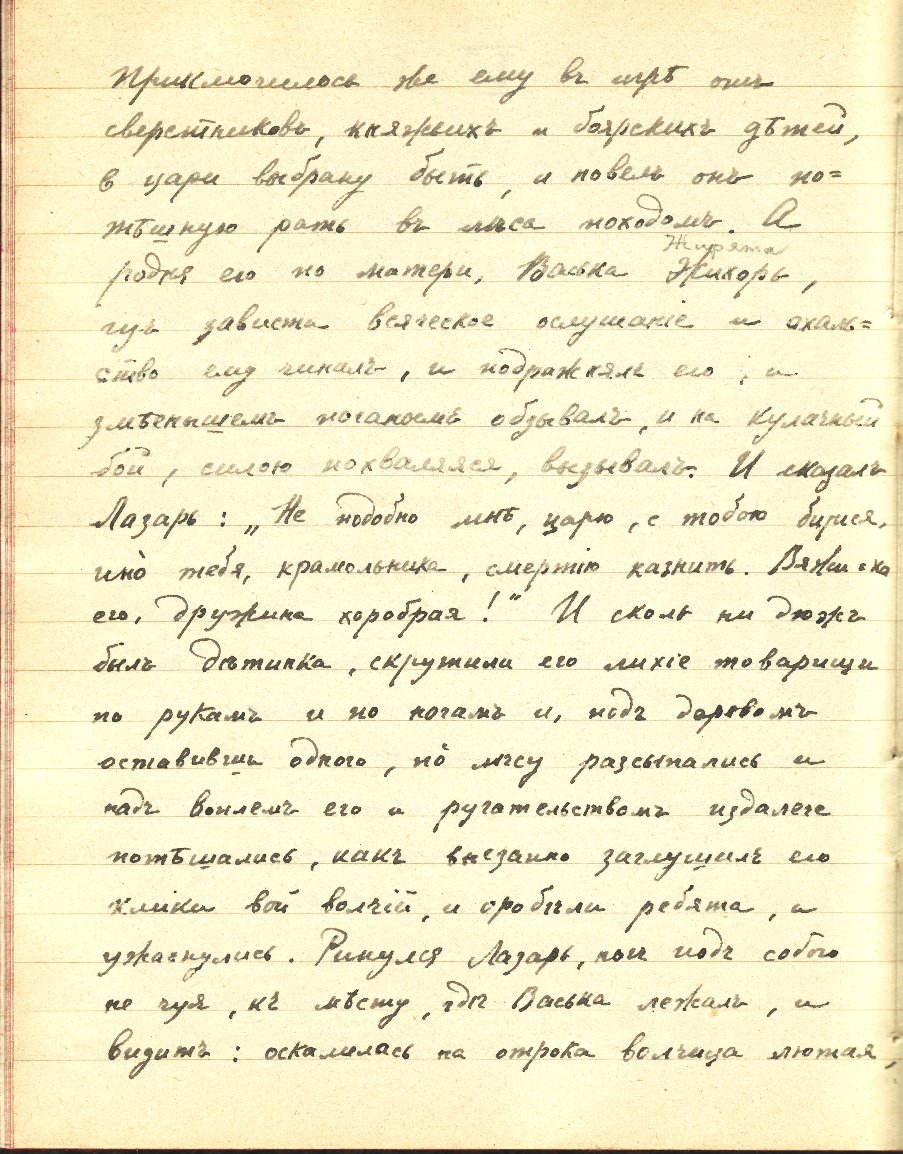 Приключилось же ему въ игрѣ отъ
сверстниковъ, княжьихъ и боярскихъ дѣтей,
в цари выбрану быть, и повелъ онъ по=
тѣшную рать въ лѣса походомъ. А
Жирята
родня его по матери, Васька Жихорь,
изъ зависти всяческое ослушаніе и охаль=
ство ему чинилъ, и подражнялъ его, и
змѣенышемъ поганымъ обзывалъ, и на кулачный
бой, силою похваляяся, вызывалъ. И сказалъ
Лазарь: „Не подобно мнѣ, царю, с тобою битися,
инò тебя, крамольника, смертію казнить. Вяжи-ка
его, дружина хоробрая!" И сколь ни дюжъ
былъ дѣтинка, скрутили его лихіе товарищи
по рукамъ и по ногамъ и, подъ деревомъ
оставивши одного, пò лѣсу разсыпались и
надъ воплемъ его и ругательствомъ издалече
потѣшались, какъ внезапно заглушилъ его
клики вой волчій, и оробѣли ребята, и
ужаснулись. Ринулся Лазарь, ногъ подъ собою
не чуя, къ мѣсту, гдѣ Васька лежалъ, и
видитъ: оскалилась на отрока волчица лютая,